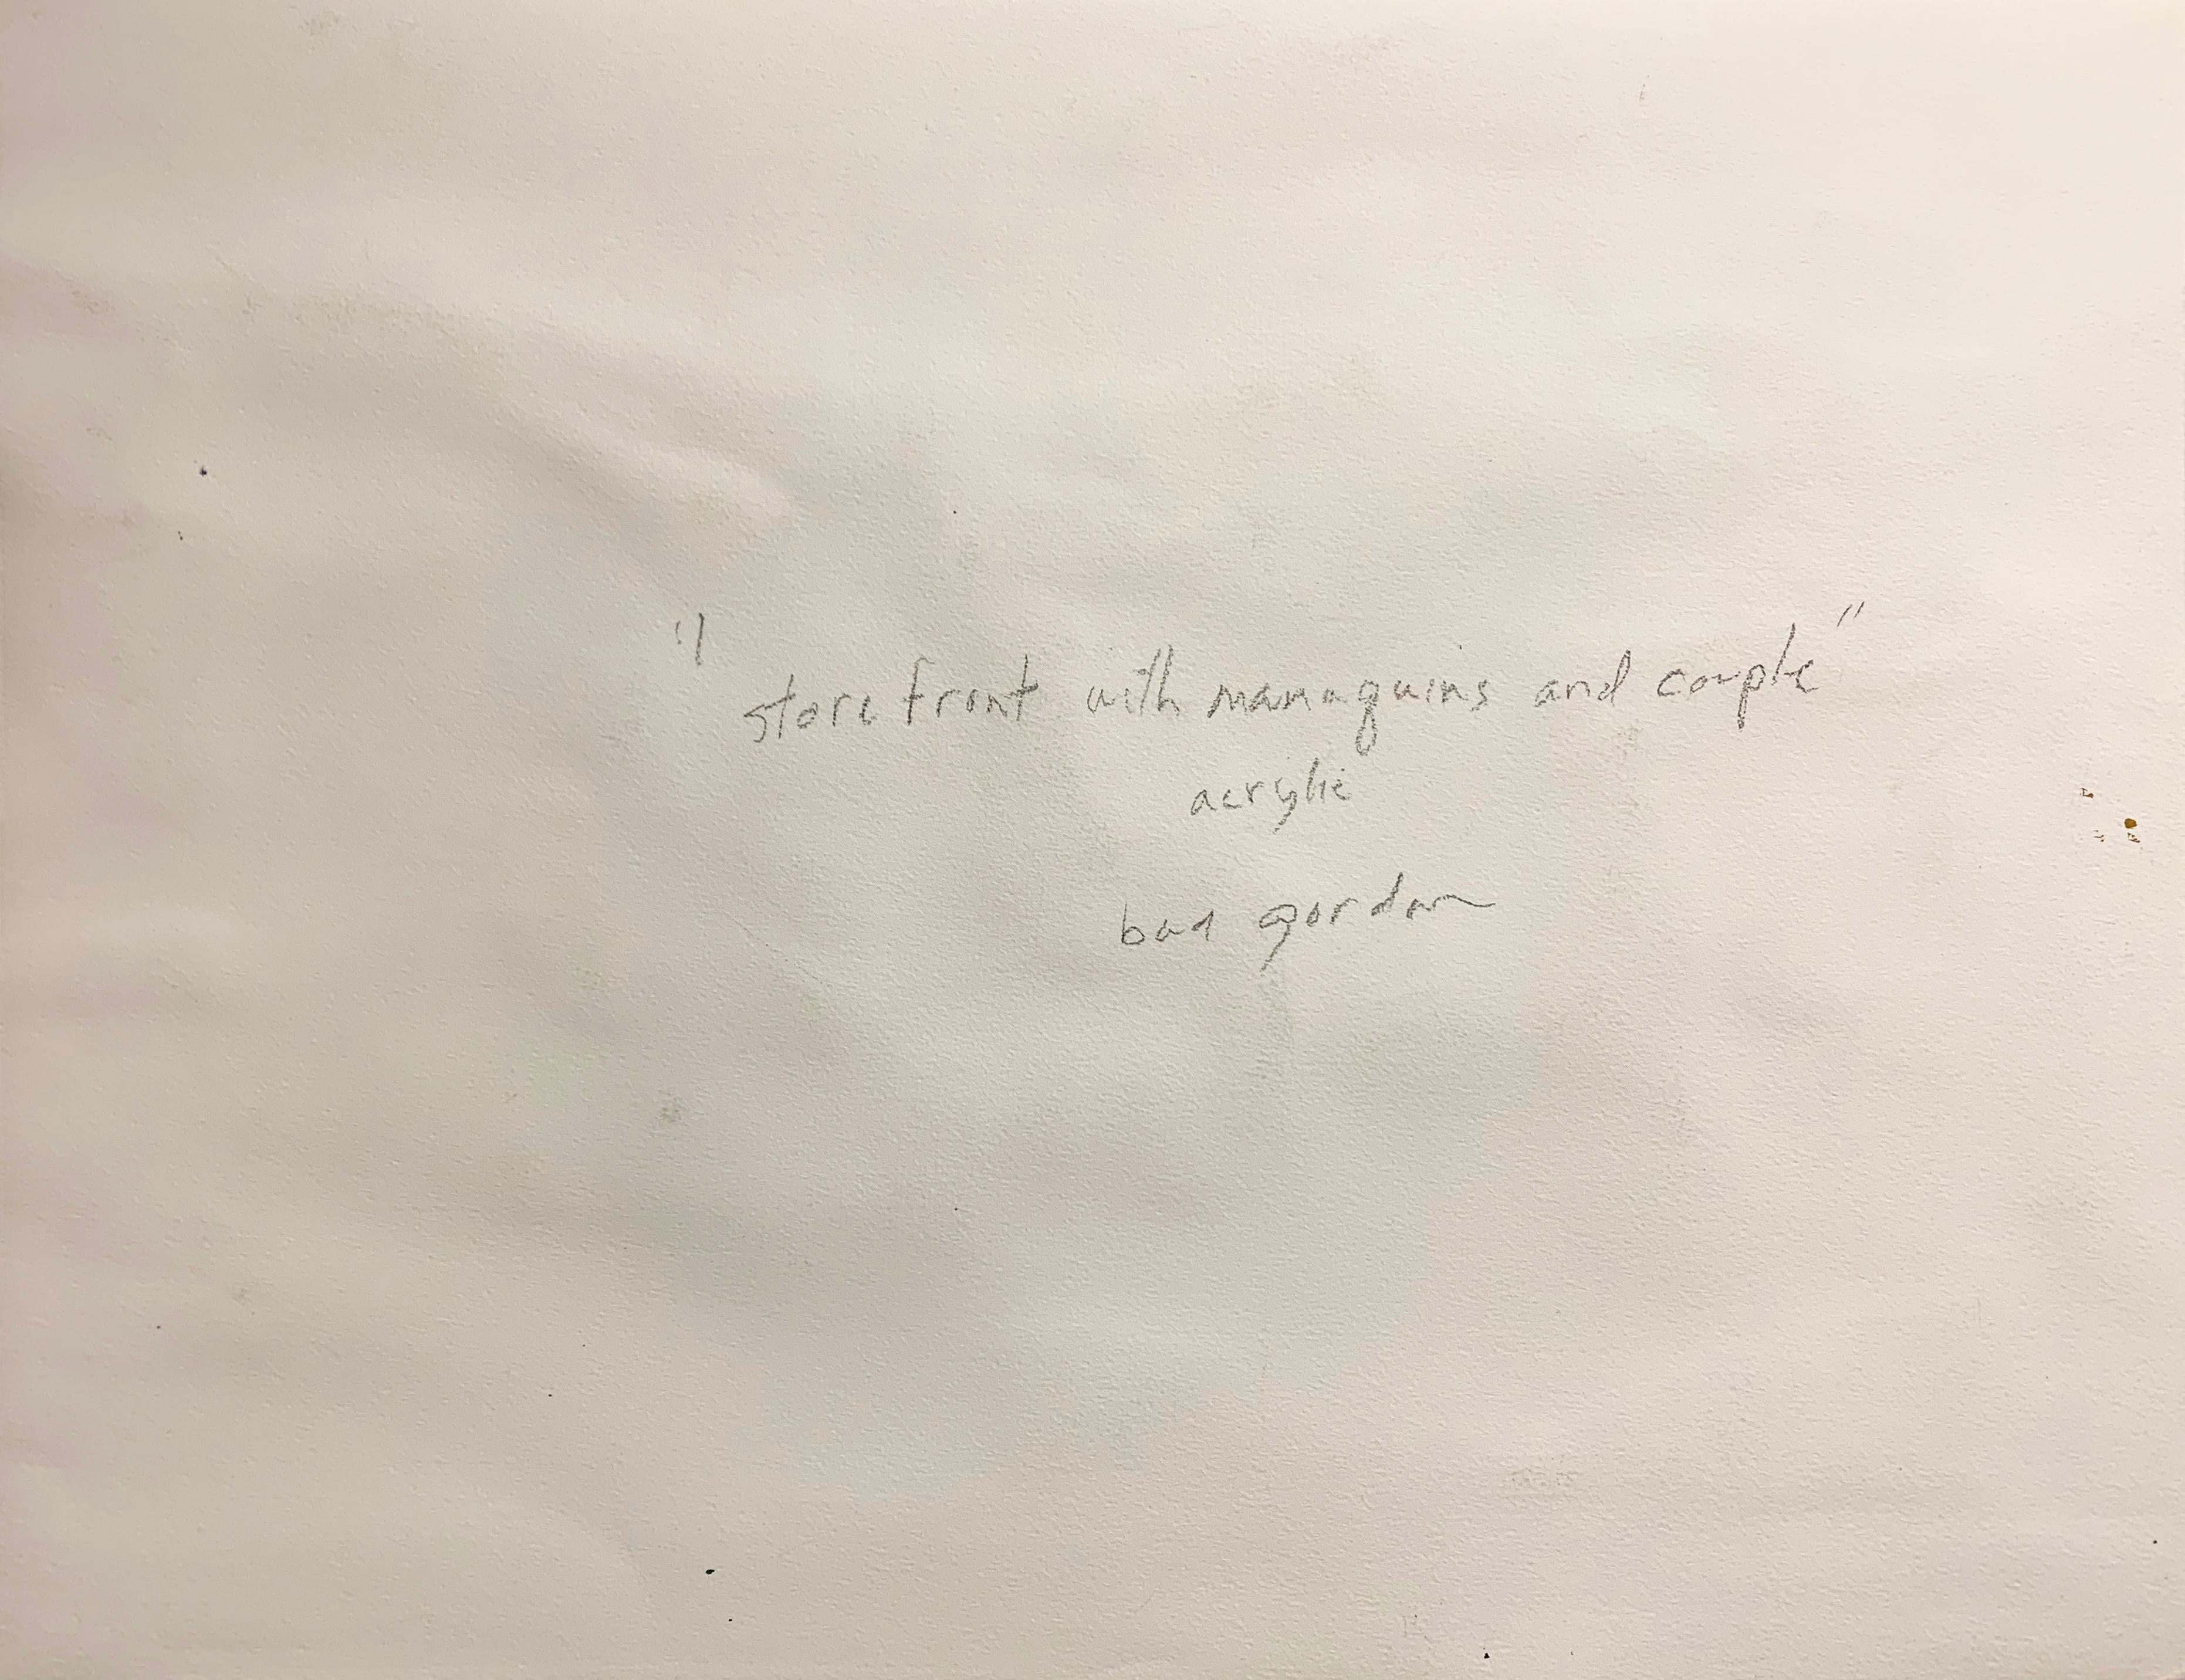 "store front with manaquins and couple"
acrylic
gordon